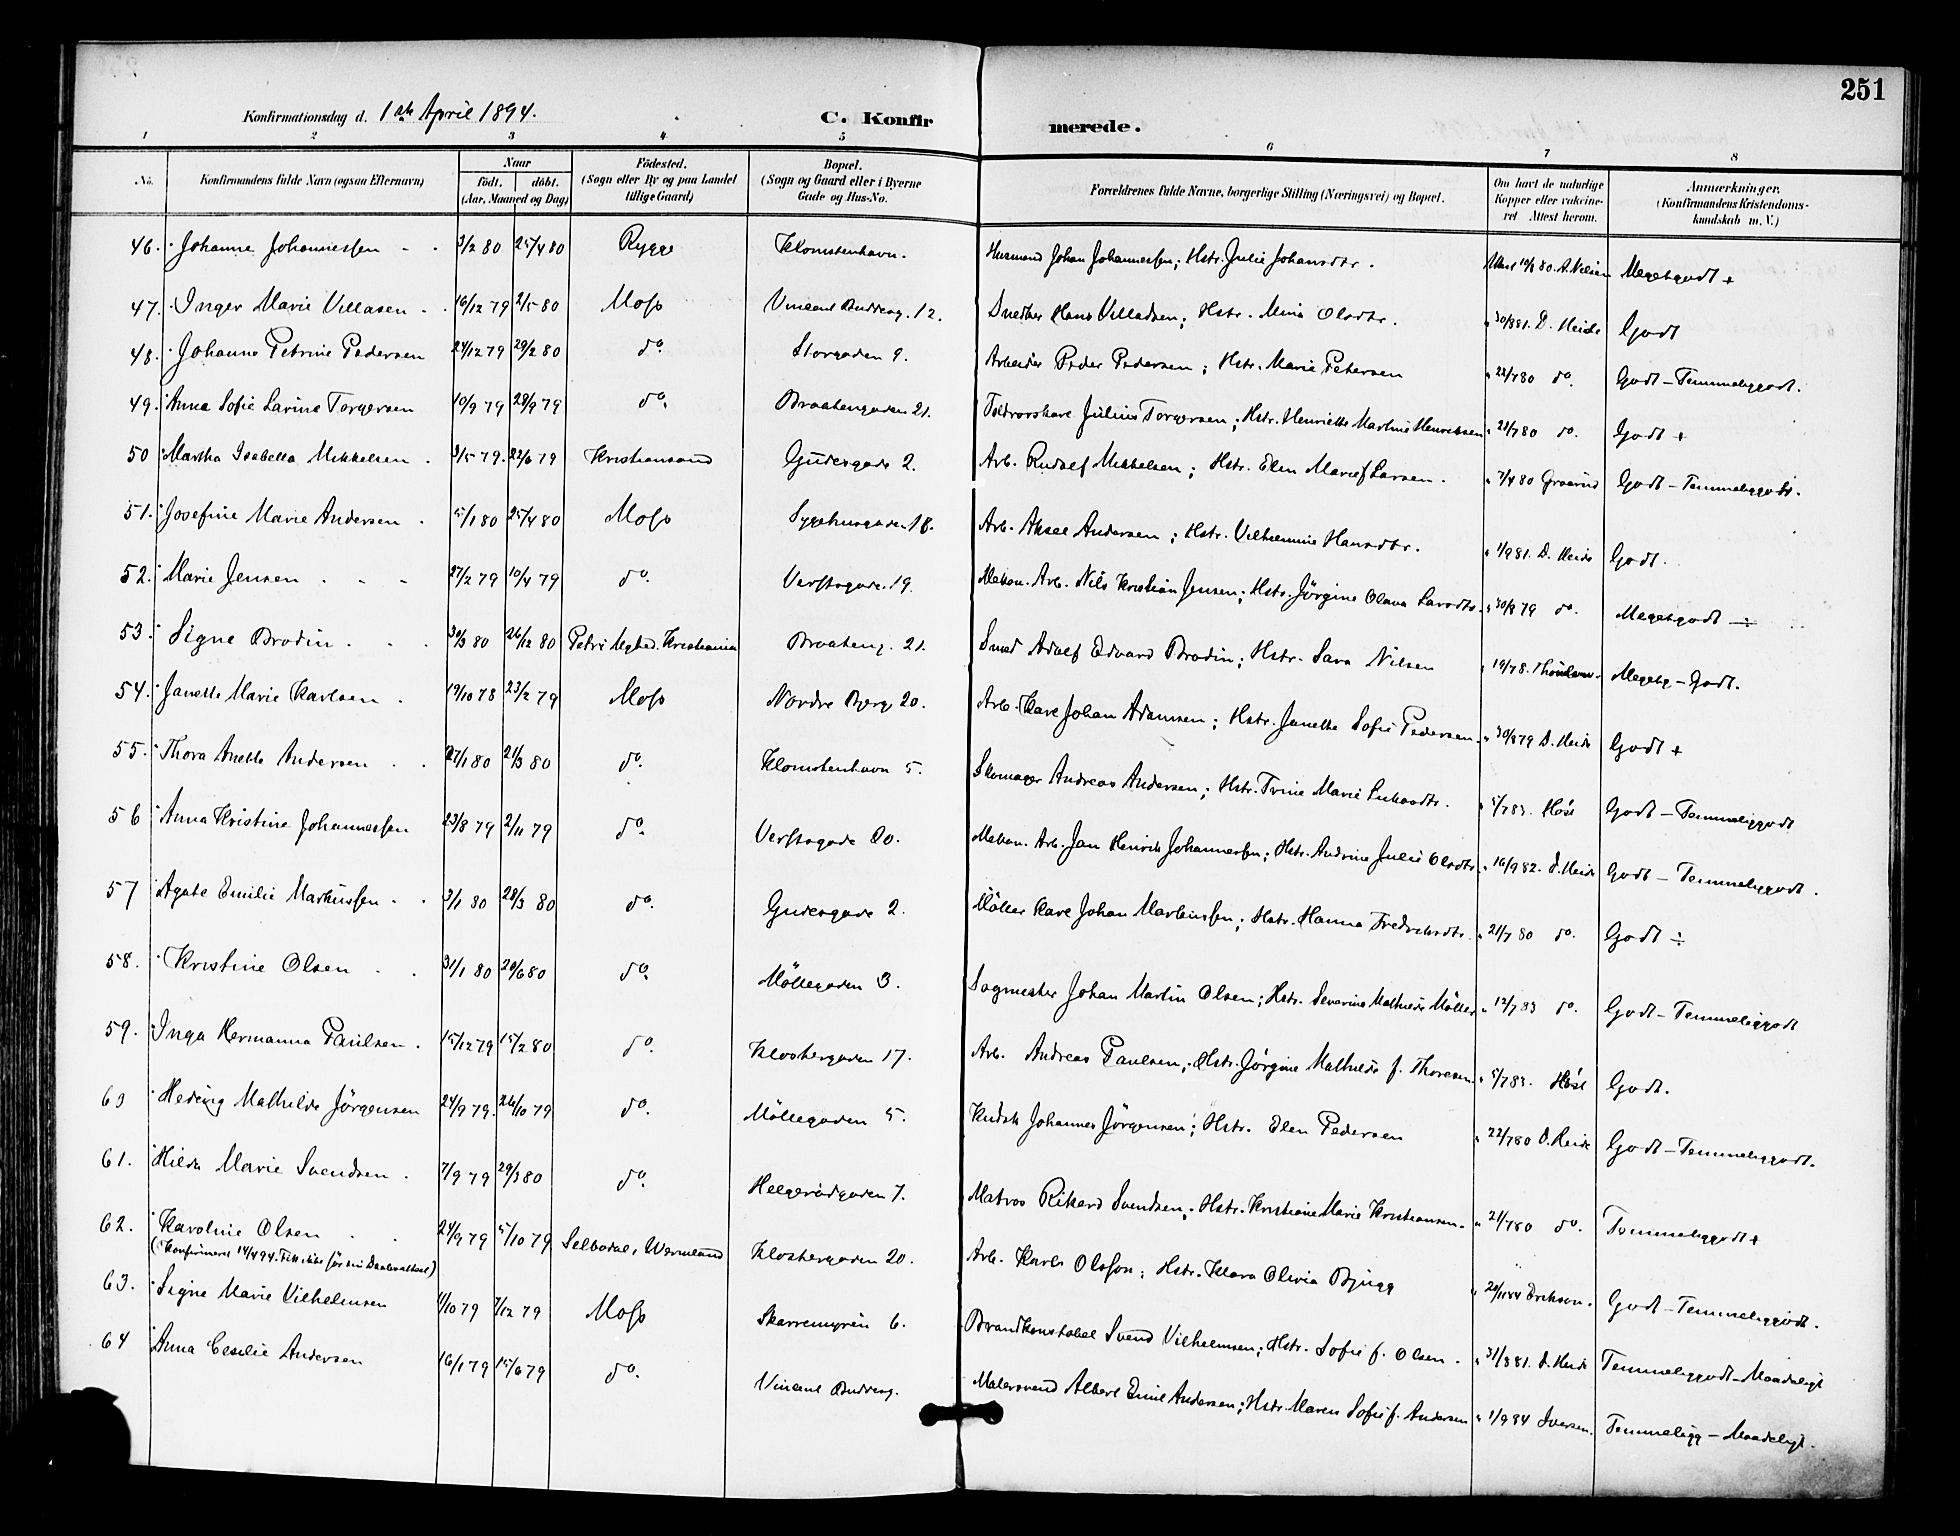 251
Konfirmationsdag d. 1ste April 1894.
C. Konfirmerede.
1 2 3 4 5 6 7 8
No. Konfirmandens fulde Navn (ogsaa Efternavn) Naar födt. döbt. (Aar, Maaned og Dag) Födested. (Sogn eller By og paa Landet tillige Gaard) Bopæl. (Sogn og Gaard eller i Byerne Gade og Hus-No. Forældrenes fulde Navne, borgerlige Stilling (Næringsvei) og Bopæl. Om havt de naturlige Kopper eller vaksineret Attest herom. Anmærkninger. (Konfirmandens Kristendomskundskab m. V.)
46. Johanne Johannessen 3/2 80 25/4 80 Rygge Klomstenhavn. Husmand Johan Johannessen; Hstr. Julie Johansdtr. Attest 19/8 80. A. Nilsen Megetgodt +
47. Inger Marie Villasen 16/12 79 2/5 80 Moss Vincent Buddesg. 12. Snedker Hans Villadsen; Hstr. Mina Olsdtr. " 30/8 81. D. Heide Godt
48. Johanne Petrine Pedersen 24/12 79 29/2 80 do. Storgaden 9. Arbeider Peder Pedersen; Hstr. Marie Petersen " 22/7 80 do. Godt - Temmeliggodt.
49. Anna Sofie Larine Torgersen 10/9 79 28/9 79 do. Braatengaden 21. Julius Torgersen; Hstr. Henriette Martine Henriksen " 22/7 80 do. Godt +
50 Martha Isabella Mikkelsen 3/5 79. 22/6 79 Kristiansand Gudesgade 2. Arb. Rudolf Mikkelsen; Hstr. Elen Marie f. Larsen. " 7/4 80 Graarud Godt - Temmeliggodt.
51. Josefine Marie Andersen 5/1 80 25/4 80 Moss Sygehusgaden 18. Arb. Aksel Andersen; Hstr. Vilhelmine Hansdtr. " 1/9 81. D. Heide Godt.
52. Marie Jensen 27/2 79 10/4 79 do. Verftsgade. 19. Mekan. Arb. Nils Kristian Jensen; Hstr. Jörgine Olava Larsdtr. " 30/8 79 do. Megetgodt ÷
53. Signe Brodin 30/3 80 26/12 80 Petri Mghed. Kristiania Braateng. 21. Smed Adolf Edvard Brodin; Hstr. Sara Nilsen Megetg - Godt.
54. Janette Marie Karlsen 19/10 78 23/2 79 Moss Nordre Bjerg 20. Arb. Karl Johan Adamsen; Hstr. Janette Sofie Pedersen. " 30/8 79 D. Heide Godt +
55. Thora Anette Andersen 27/1 80 21/3 80 do. Klomstenhavn 5. Skomager Andreas Andersen; Hstr. Trine Marie Lukasdtr. " 5/7 83. Höst Godt - Temmeliggodt
56 Anna Kristine Johannessen 23/8 79 2/11 79 do. Verftsgade 20. Mekan. Arb. Jan Henrik Johannessen; Hstr. Andrine Julie Olsdtr. " 16/9 82. D. Heide Godt - Temmeliggodt.
57 Agate Emilie Markussen 3/1 80 28/3 80 do. Gudesgade 2. Möller Karl Johan Markussen; Hstr. Hanna Fredriksdtr. " 21/7 80 do. Godt ÷
58. Kristine Olsen 31/1 80 20/6 80 do. Möllegaden 3. Sagmester Johan Martin Olsen; Hstr. Severine Mathilde Möller " 12/7 83 do. Godt - Temmeliggodt
59. Inga Hermanna Paulsen. 15/12 79 15/2 80 do. Klostergaden 17. Arb. Andreas Paulsen; Hstr. Jörgine Mathilde f. Thoresen " 5/7 83. Höst Godt.
60 Hedvig Mathilde Jörgensen 24/9 79. 26/10 79 do. Möllegaden 5. Kudsk Johannes Jörgensen; Hstr. Elen Pedersen " 22/7 80 D. Heide Godt - Temmeliggodt.
61. Hilda Marie Svendsen 7/9 79 29/3 80 do. Helgerödgaden 7. Matros Rikard Svendsen; Hstr. Kristiane Marie Kristiansen. " 21/7 80 do. Temmeliggodt +
62. Karoline Olsen 24/9 79 5/10 79 Selbodal, Wermland Klostergaden 20. Arb. Karl Olsson; Hstr. Klara Olivia Bjugg " 20/11 84 Erikson. Godt - Temmeliggodt.
(Konfirmeret 14/4 94. Fik ikke för sin Daabsattest)
63. Signe Marie Vilhelmsen 1/10 79 7/12 79 Moss Skarremyren 6. Brandkonstabel Svend Vilhelmsen; Hstr. Sofie f. Olsen. " 31/8 81. D. Heide Temmeliggodt - Maadeligt
64 Anna Cecilie Andersen 16/1 79 15/6 79 do. Vincent Buddesg. Malersvend Albert Emil Andersen; Hstr. Maren Sofie f. Andersen " 1/9 84 Iversen. Temmeligg - Maadeligt.